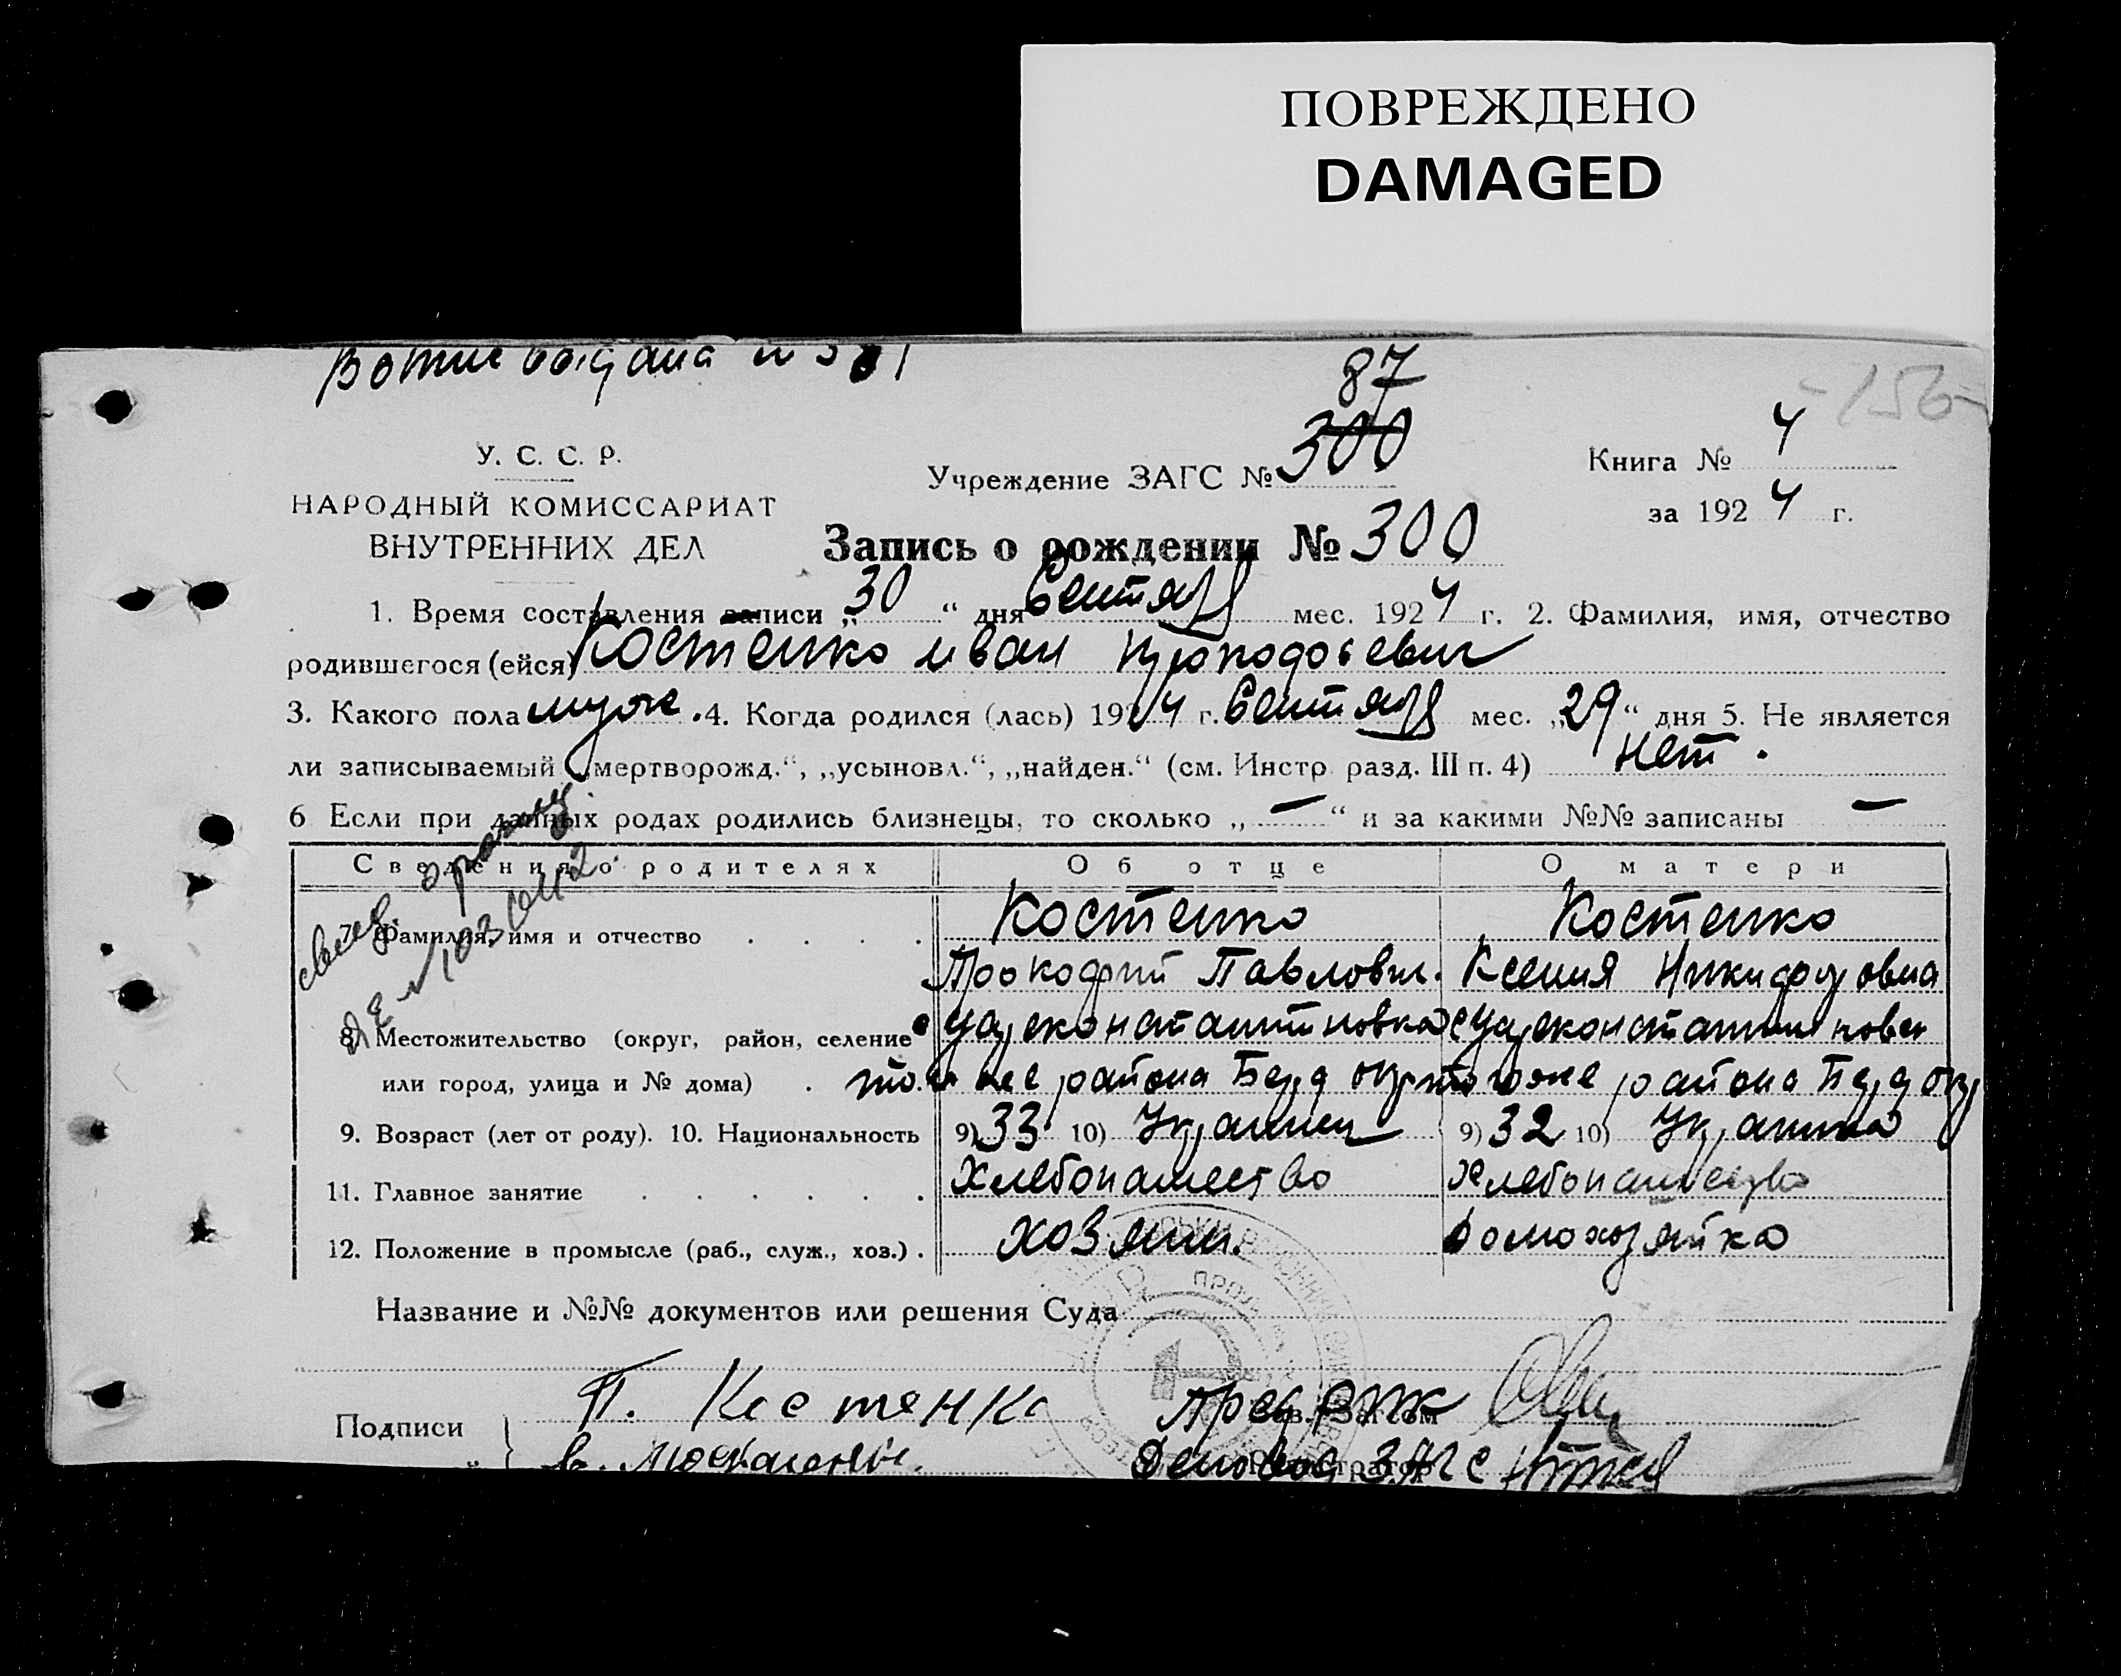 ПОВРЕЖДЕНО
DAMAGED
87
-156-
У. С. С. Р.
НАРОДНЫЙ КОМИССАРИАТ
ВНУТРЕННИХ ДЕЛ
Учреждение ЗАГС № 300
Книга № 4
за 1924 г.
Запись о рождении № 300
1. Время составления записи „30“ дня Сентября мес. 1924 г. 2. Фамилия, имя, отчество
родившегося (ейся) Костенко Иван Прокофьевич
3. Какого пола муж. 4. Когда родился (лась) 1924 г. Сентября мес. „29“ дня 5. Не является
ли записываемый „мертворожд.“, „усыновл.“, „найден.“ (см. Инстр. разд. III п. 4) нет.
6 Если при данных родах родились близнецы, то сколько „—“ и за какими №№ записаны —
Сведения о родителях Об отце О матери
7. Фамилия, имя и отчество Костенко Костенко
Прокофий Павлович. Ксения Никифоровна
8. Местожительство (округ, район, селение с Цареконстантиновка с Цареконстантиновка
или город, улица и № дома) того же района Берд окр того же района Берд окр
9. Возраст (лет от роду). 10. Национальность 9) 33 10) Украинец 9) 32 10) Украинка
11. Главное занятие Хлебопашество Хлебопашество
12. Положение в промысле (раб., служ., хоз.) хозяин. домохозяйка
Название и №№ документов или решения Суда
Подписи П. Костенко Зав. Загсом
Регистратор ЗАГС